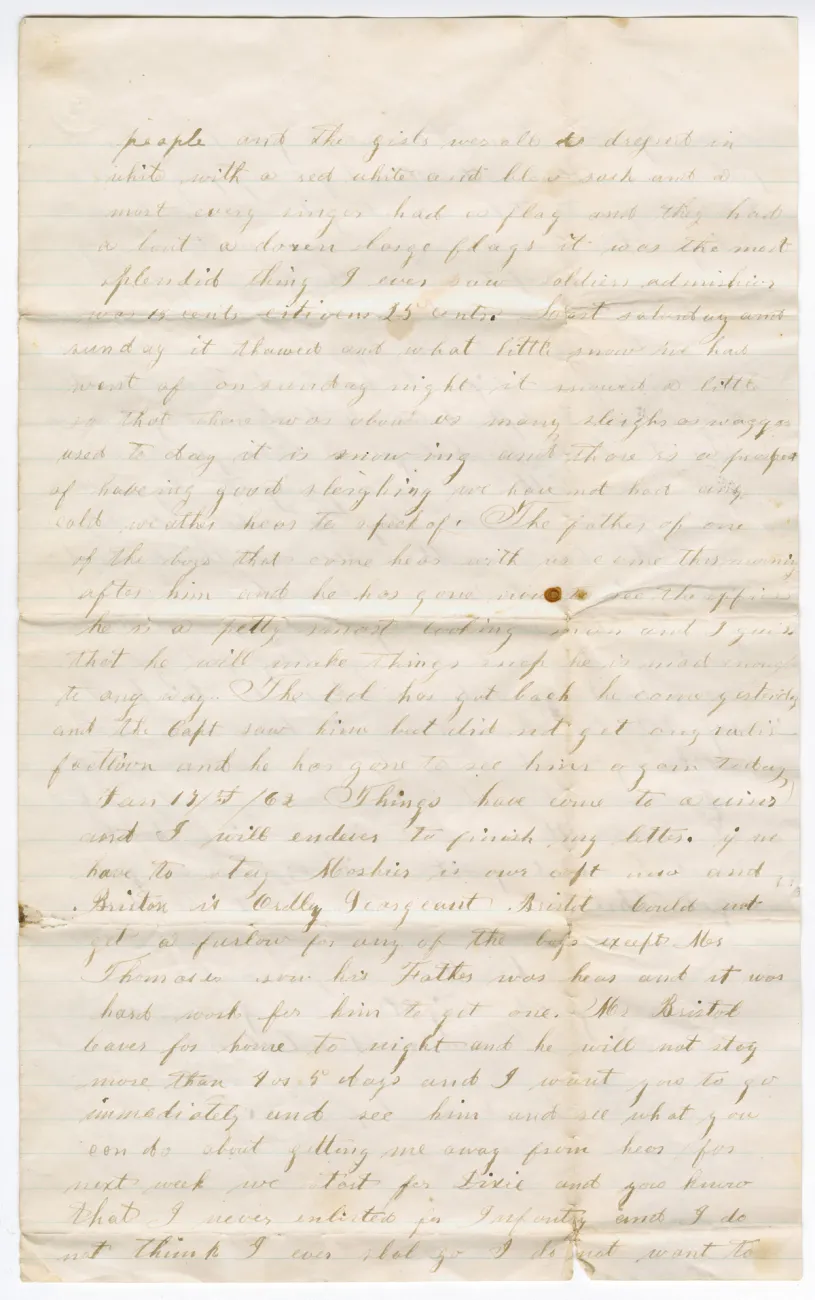 people and the girls wer all dressed in
white with a red white and blue sash and a
most every singer had a flag and they had
a bout a dozen large flags it was the most
splendid thing I ever saw soldiers admishion
was 15 cents citizens 25 cents. Last saturday and
sunday it thawed and what little snow we had
went of on sunday night it snowed a little
so that there was about as many sleighs as waggons
used to day it is snow ing and there is a
of haveing good sleighing we have not had any
cold weather hear to speak of. The father of one
of the boys that come hear with us come this morning
after him and he has gone now to see the officers
he is a petty smart looking man and I guis
that he will make things snap he is mad enough
to any way. The Col has got back he come yesterday
and the Capt saw him but did not get any
faction and he has gone to see him again today
Jan 17/ /62 Things have come to a
and I will endever to finish my letter. if we
have to stay Moshier is our capt now and
Briston is Ordly Seargeant Bristol Could not
get a furlow for any of the boys except Mr
Thomases son his Father was hear and it was
hard work for him to get one. Mr Bristol
leaves for home to night and he will not stay
more than 4 or 5 days and I want you to go
immediately and see him and see what you
can do about getting me away from hear for
next week we start for Dixie and you know
that I never enlisted for Infantry and I do
not think I ever shal go I do not want to